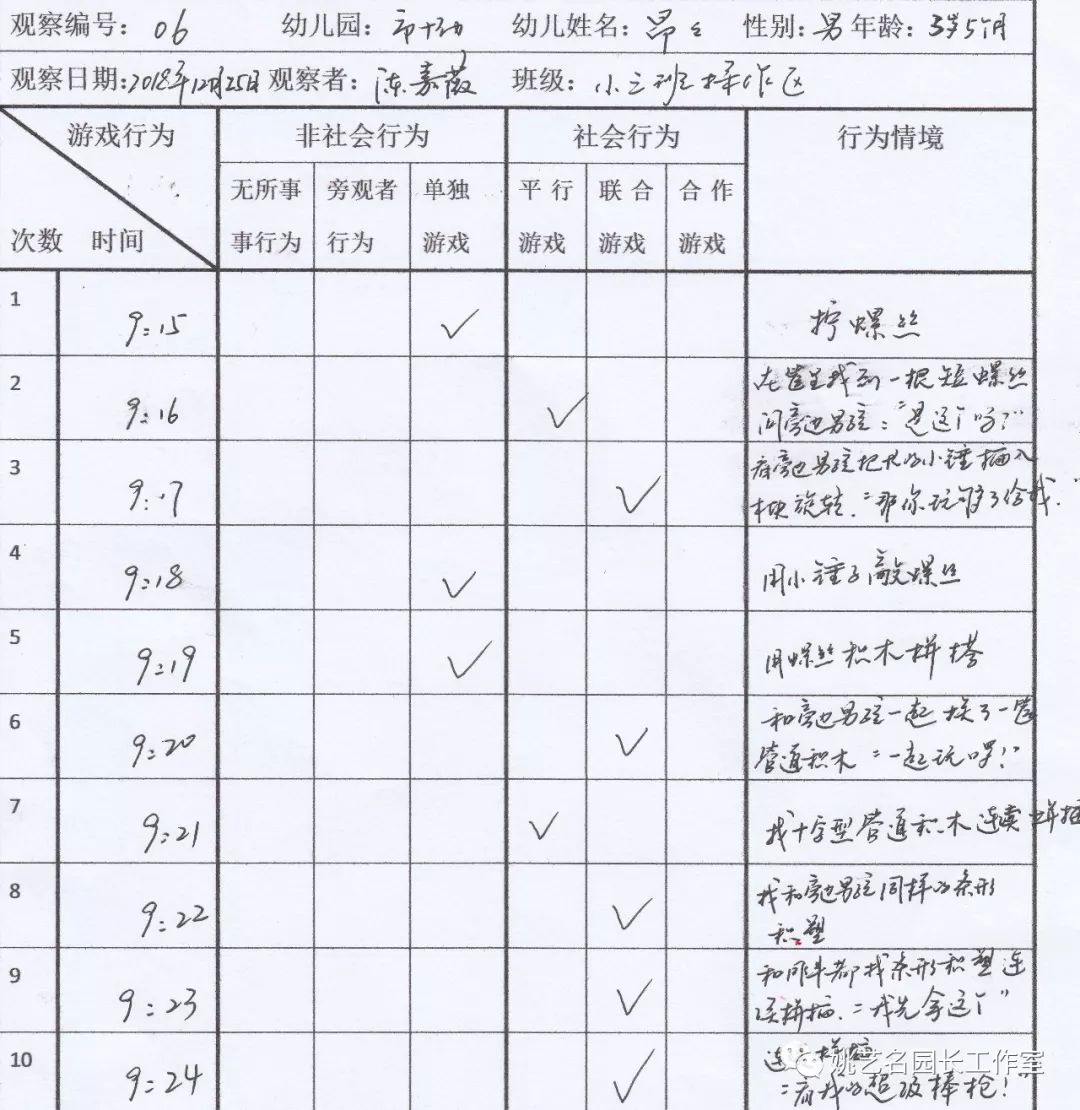 观察编号: 06 幼儿园: 市十幼 幼儿姓名: 昂昂 性别: 男 年龄: 3岁5个月
观察日期: 2018年12月25日 观察者: 陈嘉薇 班级: 小三班操作区
游戏行为 非社会行为 社会行为 行为情境
无所事 旁观者 单独 平行 联合 合作
次数 时间 事行为 行为 游戏 游戏 游戏 游戏
1 9:15 ✓ 拧螺丝
2 9:16 ✓ 在筐里找到一根短螺丝
问旁边男孩:“是这个吗?”
3 9:17 ✓ 看旁边男孩把长的小锤插入
旋转.“那你玩够了给我.”
4 9:18 ✓ 用小锤子敲螺丝
5 9:19 ✓ 用螺丝积木拼搭
6 9:20 ✓ 和旁边男孩一起换了一筐
管道积木“一起玩啰!”
7 9:21 ✓ 找十字型管道积木连续拼插
8 9:22 ✓ 找和旁边男孩同样的条形
积塑
9 9:23 ✓ 和同伴都找条形积塑连
续拼插.“我先拿这个”
10 9:24 ✓ 连续拼插
“看我的超级棒枪!”
姚艺名园长工作室